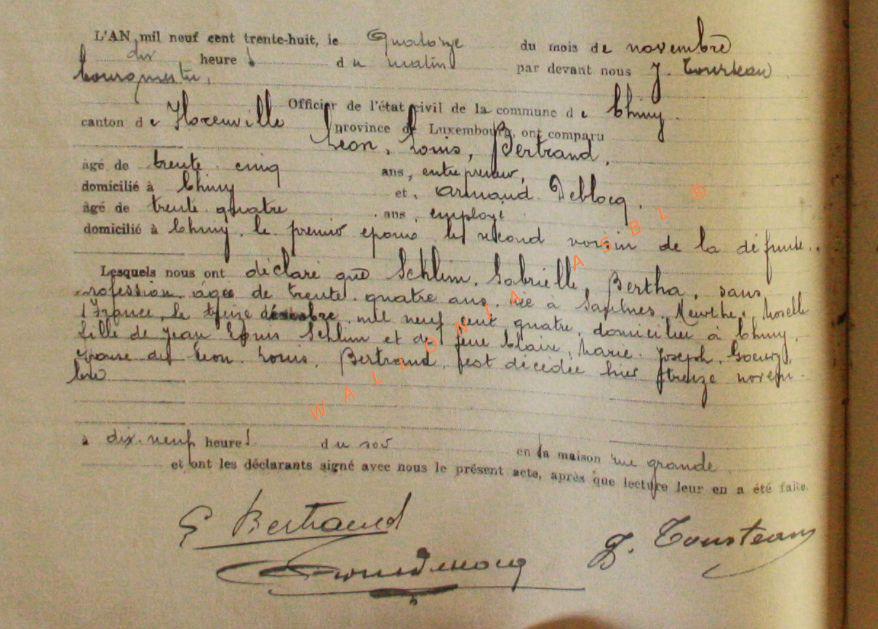 L'AN mil neuf cent trente-huit, le Quatorze du mois de novembre
dix heures du matin par devant nous J. Tousteau
bourgmestre,
Officier de l'état civil de la commune de Chiny.
canton de Florenville province de Luxembourg, ont comparu
Léon, Louis, Bertrand,
âgé de trente cinq ans, entrepreneur,
domicilié à Chiny et, Armand Deblocq,
âgé de trente quatre ans, employé
domicilié à Chiny, le premier époux le second voisin de la défunte..
Lesquels nous ont déclaré que Schlim, Gabrielle, Bertha, sans
profession âgée de trente quatre ans, née à Meurthe, Moselle
France, le treize mil neuf cent quatre, domiciliée à Chiny,
fille de Jean Louis Schlim et de feue Claire, Marie, Joseph,
épouse de Léon Louis, Bertrand, est décédée hier treize novem-
bre
à dix-neuf heures du soir en la maison rue grande
et ont les déclarants signé avec nous le présent acte, après que lecture leur en a été faite.
WALLONIA ASBL ©
Bertrand
J. Tousteau